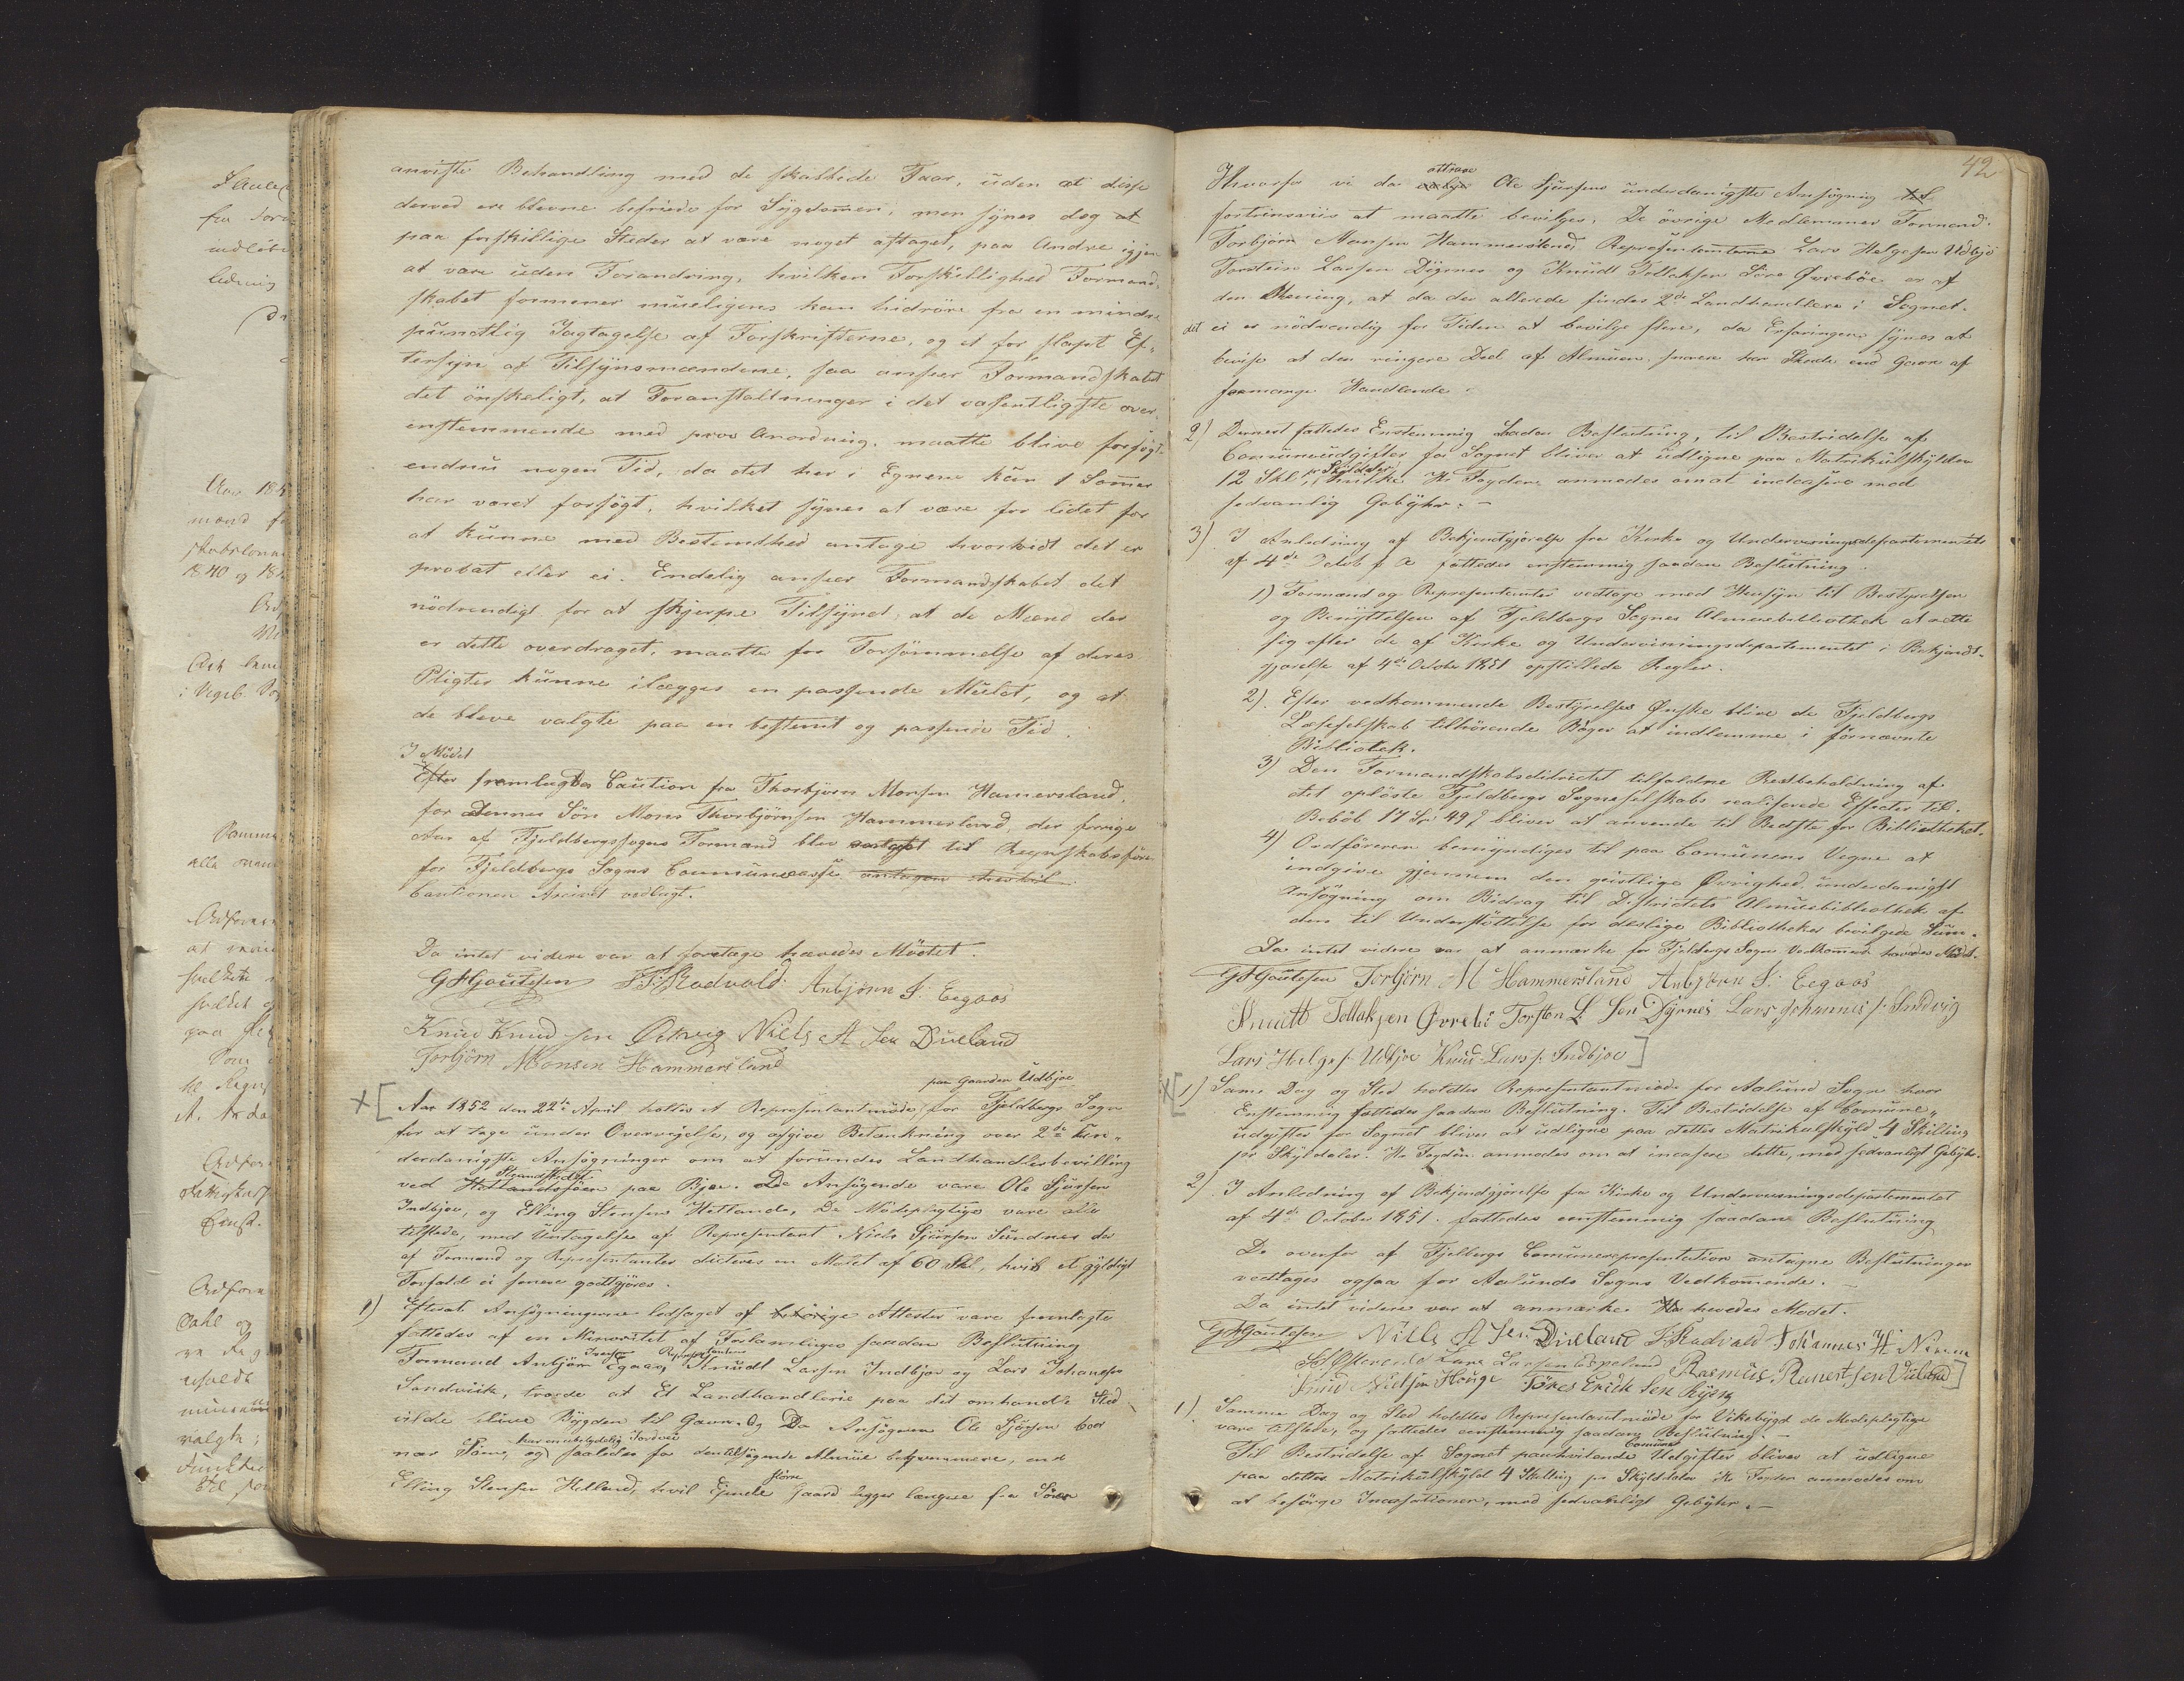 anviste Behandling med de skabbede Faar, uden at disse
derved ere blevne befriede for Sygdomen, men synes dog at
paa forskillige Steder at være noget aftaget, paa Andre igjen
at være uden Forandring, hvilken Forskjellighed Formand-
skabet formener mueligens kan hidröre fra en mindre
punctlig Iagtagelse af Forskrifterne, og et for slapt Ef-
tersyn af Tilsynsmændene, saa anseer Formandskabet
det önskeligt, at Foranstaltninger i det væsentligste over-
enstemmende med prov Anordning, maatte blive forsögt
endnu nogen Tid, da det her i Egnene kun 1 Somer
har været forsögt, hvilket synes at være for lidet for
at kunne med Bestemthed antage hvorvidt det er
probat eller ei. Endelig anseer Formandskabet det
nödvendigt for at skjerpe Tilsynet, at de Mænd der
er dette overdraget, maatte for Forsömmelse af deres
Pligter kunne ilægges en passende Mulct, og at
de bleve valgte paa en bestemt og passende Tid.
I Mödet
Efter fremlagdes Caution fra Thorbjörn Monsen Hamersland,
for Dennes Sön Mons Thorbjörnsen Hammersland, der forrige
Aar af Fjeldbergssogns Formænd blev valgt til Regnskabsförer
for Fjeldbergs Sogns Communecasse antagen hertil
Cautionen Arcivet vedlagt.
Da intet videre var at foretage hævedes Mödet.
G HGautesen T T Rødvold Anbjörn I. Eegaas
Knud Knud sen Ørevig Niels A Sen Dueland
Torbjörn Monsen Hammersland
paa Gaarden Udbjoe
Aar 1852 den 22de April holtes et Representantmöde for Fjeldbergs Sogn
for at tage under Overveielse, og afgive Betænkning over 2de Un-
derdanigste Ansögninger om at forundes Landhandlerbevilling
Strandstedet
ved Hetlandssöen paa Bjoe. De Ansögende vare Ole Sjursen
Indbjoe, og Elling Stensen Hetlande, De Mödepligtige vare alle
tilstede, med Untagelse af Representant Niels Sjursen Sundnes der
af Formænd og Representanter dicteres en Mulct af 60 Skl, hvis et gyldigt
Forfald ei senere godtgjöres.
1) Efterat Ansögningerne ledsaget af behörige Attester vare fremlagte
fattedes af en Minoritet af Forsamlingen saadan Beslutning
Iversen Representantene
Formand Anbjörn Egaas, Knudt Larsen Indbjoe og Lars Johannesen
Sandviik, troede at Et Landhandlerie paa det omhandle Sted
vilde blive Bygden til Gavn. Og Da Ansögeren Ole Sjursen boer
har en ubetydelig Jordvei
nær Söen, og saaledes for den tilsögende Almue beqvemmere, end
större
Elling Stensen Hetland, hvis Eiende Gaard ligger længere fra Söen
42
attraae
Hvorfor vi da Ole Sjursens underdanigste Ansögning
fortrinsviis at maatte bevilges. De övrige Medlemmer Formænd.
Torbjörn Monsen Hammersland, Representanterne Lars Helgesen Udbjo
Torstein Larsen Dyrnes og Knudt Tollaksen Övre Øvreböe er af
den Mening, at da der allerede findes 2de Landhandlere i Sognet.
det ei er nödvendig for Tiden at bevilge flere, da Erfaringen synes at
bevise at den ringere Deel af Almuen, snarere har Skade end Gavn af
saamange Handlende.
2) Dernest fattedes Enstemmig saadan Beslutning, til Bestridelse af
Comuneudgifter for Sognet bliver at udligne paa Matrikulskylden
pr Skylddaler
12 Skl, hvilke Hr Fogden anmodes om at indcassere med
sedvanlig Gebyhr.
3) I Anledning af Bekjendtgjörelse fra Kirke og Undervisningsdepartementet
af 4de Octob f. A. fattedes enstemmig saadan Beslutning.
1) Formænd og Representanter vedtage med Hensyn til Bestyrelsen
og Benyttelsen af Fjeldbergs Sognes Almuebibliothek at rette
sig efter de af Kirke og Undervisningsdepartementet i Bekjendt-
gjörelse af 4de Octobr 1851 opstillede Regler.
2). Efter vedkommende Bestyrelses Ønske blive de Fjeldbergs
Læseselskab tilhörende Böger at indlemme i förnævnte
Bibliotek.
3) Den Formandskabsdistrictet tilfaldne Restbeholdning af
det oplöste Fjeldbergs Sogneselskabs realiserede Effecter til.
Belöb 17 Spd 49 s bliver at anvende til Bedste for Bibliotheket.
4) Ordföreren bemyndiges til paa Comunens Vegne at
indgive gjennem den geistlige Øvrighed underdanigst
Ansögning om Bidrag til Districtets Almuebibliothek af
den til Understöttelse for deslige Bibliotheker bevilgede Sum.
Da intet videre var at anmærke for Fjeldbergs Sogn Vedkommende hævedes Mödet.
G HGautesen Torbjörn M Hammersland Anbjörn I. Eegaas
Knudt Tollaksen Øvrebö Torsten L Sen Dyrnes Lars Johannes s. Sandvig
Lars Helges s. Udbjoe Knud Lars s. Indbjoe
1) Same Dag og Sted holdtes Representantmöde for Aalund Sogn hvor
Enstemmig fattedes saadan Beslutning. Til Bestridelse af Comune-
udgifter for Sognet bliver at udligne paa dettes Matrikulskyld 4 Skilling
pr Skylddaler. Hr Fogden anmodes om at incasere dette, med sedvanligt Gebyhr.
2) I Anledning af Bekjendgjörelse fra Kirke og Undervisningsdepartementet
af 4de October 1851. fattedes eenstemmig saadan Beslutning
De ovenfor af Fjelbergs Comunerepresentation antagne Beslutninger
vedtages ogsaa for Aalunds Sogns Vedkomende.
Da intet videre var at anmærke hævedes Mödet.
G HGautesen Niels A Sen Dueland T Rødvold Johannes H
Lars Larsen Espeland Rasmus Reinert sen Vieland
Knud Nielsen Houge Töres Erick Sen
1) Samme Dag og Sted holdtes Representantmöde for Vikebygd de Mödepligtige
vare tilstede, og fattedes eenstemmig saadan Beslutning:
Comune
Til Bestridelse af Sognet paahvilende Udgifter bliver at udligne
paa dettes Matrikulskyld 4 Skilling pr Skylddaler Hr Fogden anmodes om
at besörge Incassationen, med sedvanligt Gebyhr.